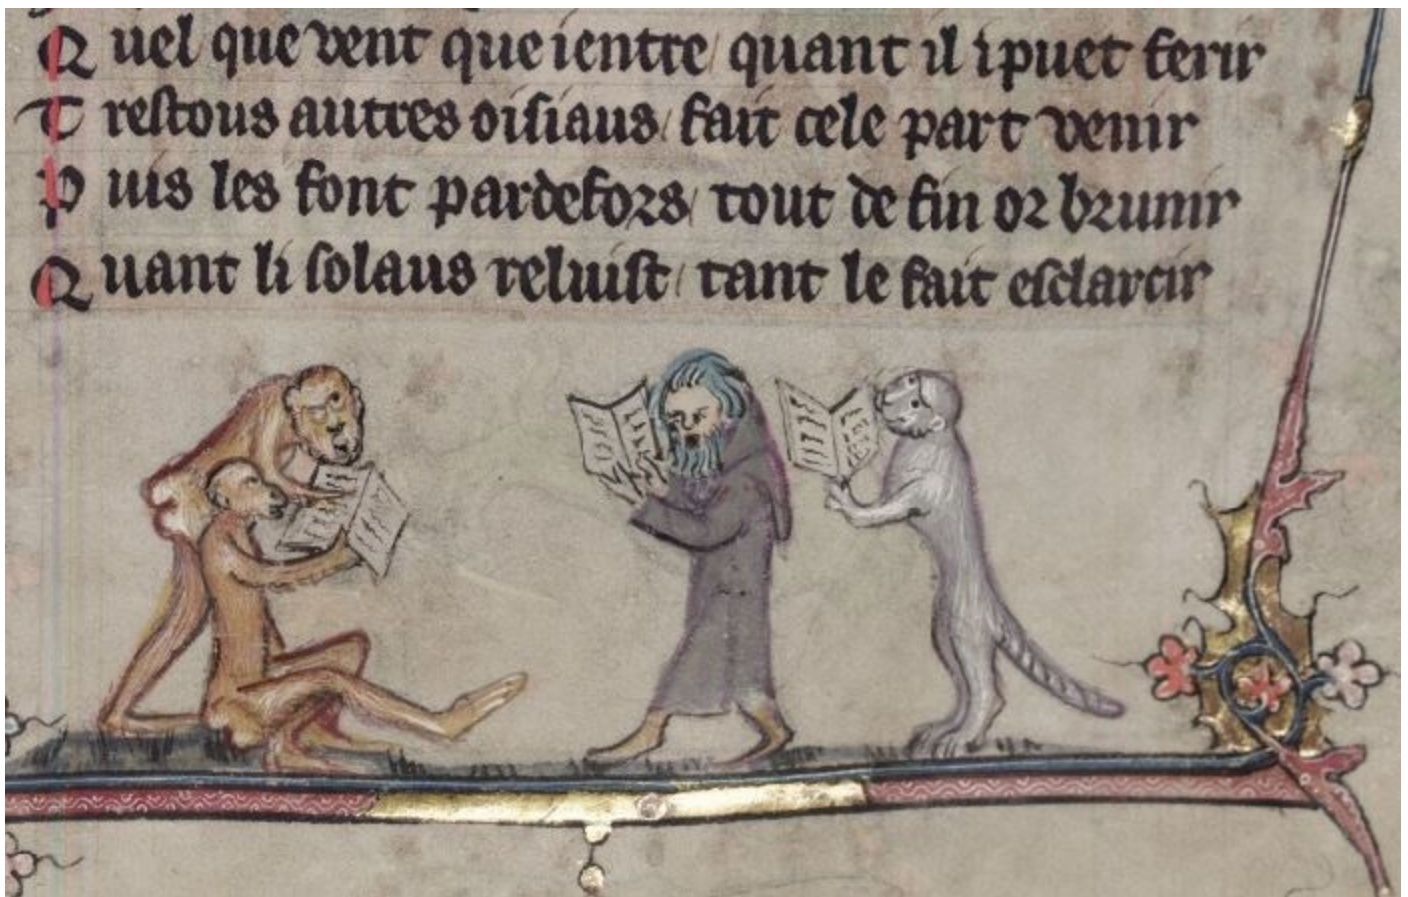 Q uel que vent que ientre / quant il i puet ferir
T restous autres oisiaus / fait cele part venir
P uis les font pardefors / tout de fin or brunir
Q uant li solaus reluist / tant le fait esclarcir